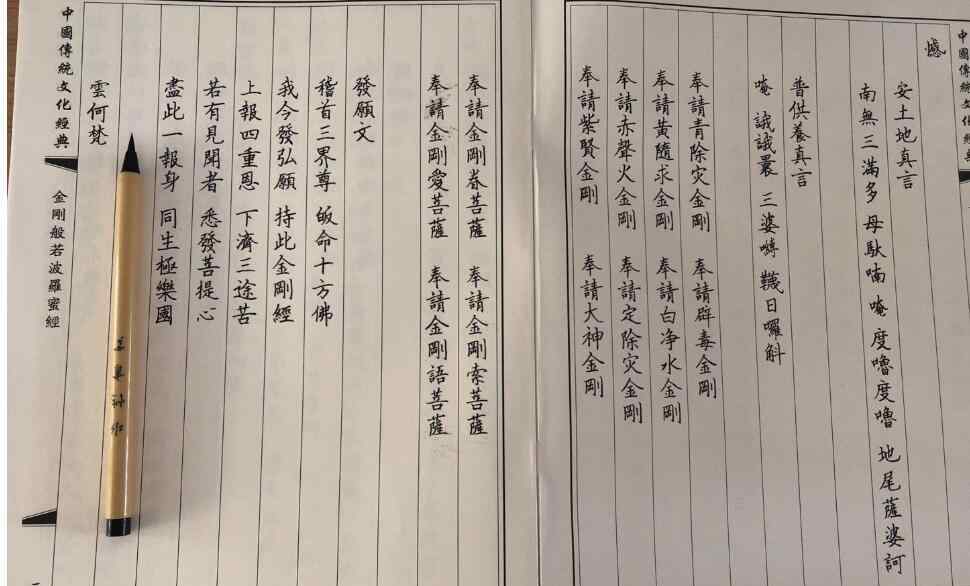 中國傳統文化經典
憾
安土地真言
南無三滿多 母馱喃 唵 度嚕度嚕 地尾薩婆訶
普供養真言
唵 誐誐曩 三婆嚩 韈日囉斛
奉請青除灾金剛 奉請辟毒金剛
奉請黃隨求金剛 奉請白净水金剛
奉請赤聲火金剛 奉請定除灾金剛
奉請紫賢金剛 奉請大神金剛
奉請金剛眷菩薩 奉請金剛索菩薩
奉請金剛愛菩薩 奉請金剛語菩薩
發願文
稽首三界尊 皈命十方佛
我今發弘願 持此金剛經
上報四重恩 下濟三途苦
若有見聞者 悉發菩提心
盡此一報身 同生極樂國
雲何梵
中國傳統文化經典
金剛般若波羅蜜經